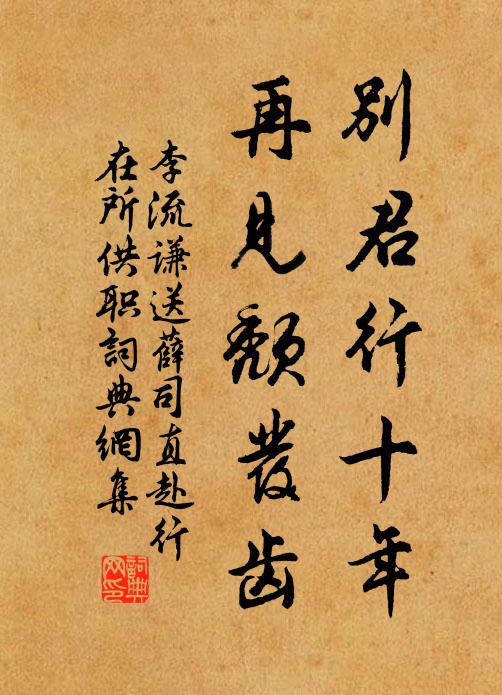 别君行十年
再见颓发齿
李流谦送薛司直赴行
在所供职词典網集
詞典网印